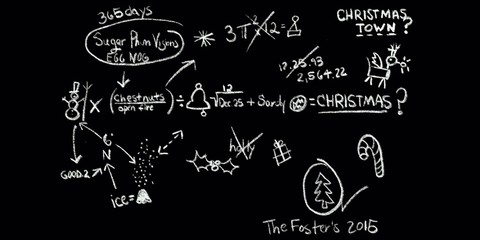 365 days
Sugar Plum Visions
+
EGG NOG
3π²×12=
CHRISTMAS
TOWN?
12.25.93
2,564.22
× (chestnuts
open fire) ÷ √12
Dec 25 + Sandy = CHRISTMAS?
6
N
GOOD 2
holly
ice=
The Foster's 2015